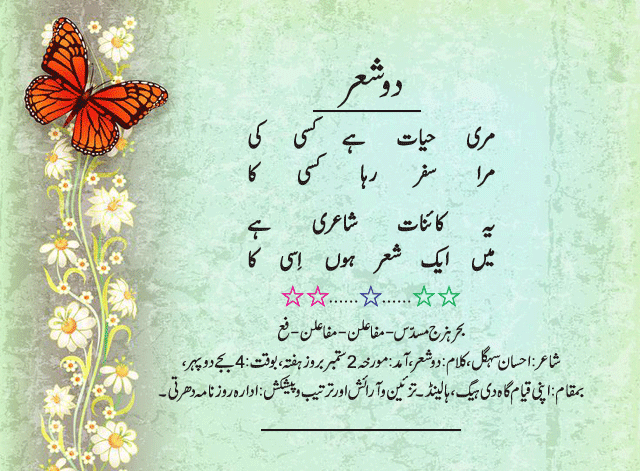 دو شعر
مری حیات ہے کسی کی
مرا سفر رہا کسی کا
یہ کائنات شاعری ہے
میں ایک شعر ہوں اِسی کا
بحر ہزج مسدّس - مفاعلن - مفاعلن - فع
شاعر: احسان سہگل، کلام: دو شعر، آمد: مورخہ 2 ستمبر بروز ہفتہ، بوقت: 4 بجے دوپہر،
بمقام: اپنی قیام گاہ دی ہیگ، ہالینڈ۔ تزئین و آرائش اور ترتیب و پیشکش: ادارہ روزنامہ دھرتی۔